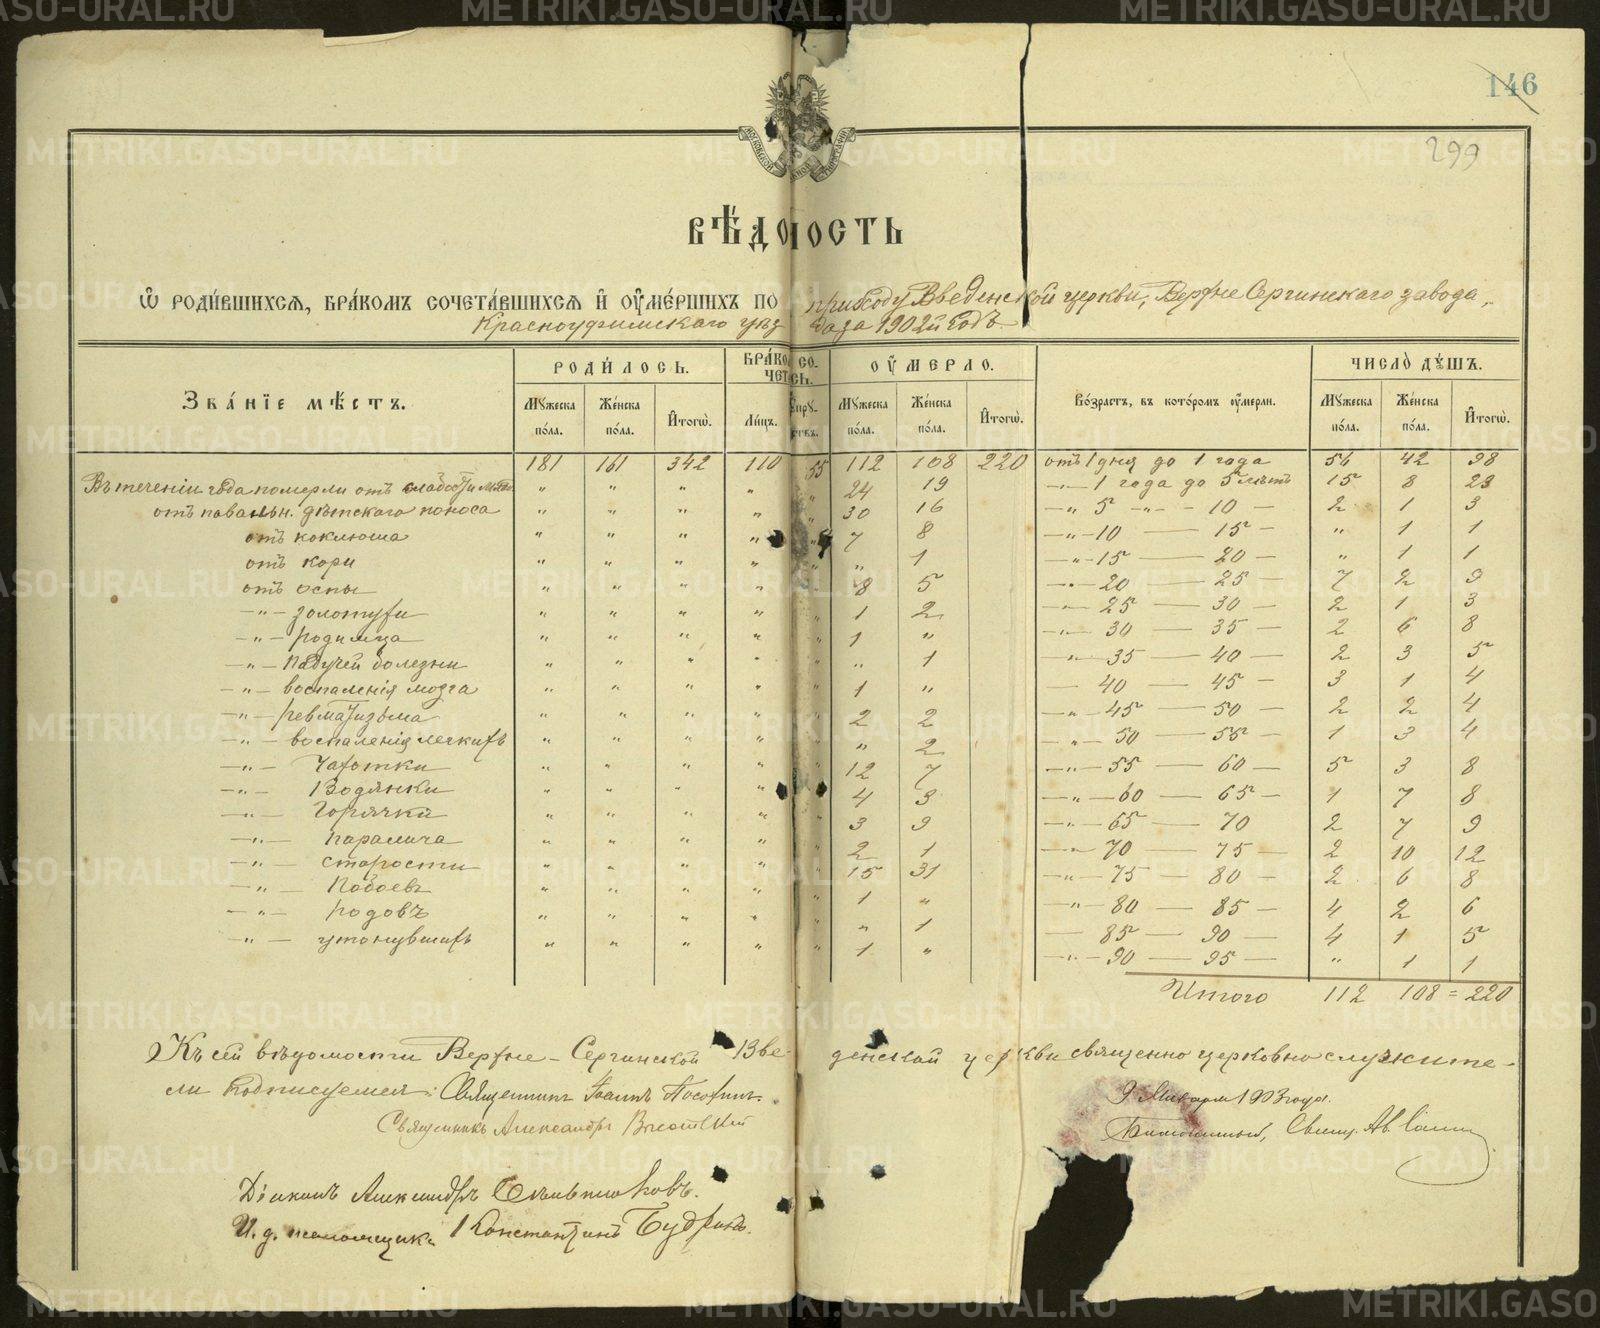 146
299
ВѢ́ДОМОСТЬ
Ѽ РОДИ́ВШИХСѦ, БРА́КОМЪ СОЧЕТА́ВШИХСѦ И҆ ОУ҆МЕ́РШИХЪ ПО приходу Введенской церкви, Верхне Сергинскаго завода,
Красноуфимскаго уѣзда за 1902й годъ.
ЗВА́НІЕ МѢ́СТЪ. РОДИ́ЛОСЬ. БРА́КОМЪ СОЧЕТ СЬ. ОУ҆́МЕРЛО. Во́зрастъ, въ кото́ромъ оу҆́мерли. ЧИСЛО̀ ДꙊ́ШЪ.
Мꙋ́жеска по́ла. Же́нска по́ла. И҆того̀. Ли́цъ. Мꙋ́жеска по́ла. Же́нска по́ла. И҆того̀. Мꙋ́жеска по́ла. Же́нска по́ла. И҆того̀.
181 161 342 110 55 112 108 220 отъ 1 дня до 1 года 56 42 98
Въ теченіи года померли отъ слабости " " " " " 24 19 -"- 1 года до 5 лѣтъ 15 8 23
отъ повальн. дѣтскаго поноса " " " " " 30 16 -"- 5 -"- 10 - 2 1 3
отъ коклюша " " " " " 7 8 -"- 10 — 15 - " 1 1
отъ кори " " " " " " 1 -"- 15 — 20 - " 1 1
отъ оспы " " " " " 8 5 -"- 20 — 25 - 7 2 9
-"- золотухи " " " " " 1 2 -"- 25 — 30 - 2 1 3
-"- родимца " " " " " 1 " -"- 30 — 35 - 2 6 8
-"- падучей болезни " " " " " " 1 -"- 35 — 40 - 2 3 5
-"- воспаленія мозга " " " " " 1 " — 40 — 45 - 3 1 4
-"- ревматизьма " " " " " 2 2 -"- 45 — 50 - 2 2 4
-"- воспаленія легкихъ " " " " " " 2 -"- 50 — 55 - 1 3 4
-"- Чахотки " " " " " 12 7 -"- 55 — 60 - 5 3 8
-"- Водянки " " " " " 4 3 -"- 60 — 65 - 1 7 8
-"- Горячки " " " " " 3 9 -"- 65 — 70 2 7 9
-"- паралича " " " " " 2 1 -"- 70 — 75 - 2 10 12
-"- старости " " " " " 15 31 -"- 75 — 80 - 2 6 8
-"- Побоевъ " " " " " 1 " -"- 80 — 85 - 4 2 6
-"- родовъ " " " " " " 1 — 85 — 90 - 4 1 5
-"- утонувшихъ " " " " " 1 " -"- 90 — 95 - " 1 1
Итого 112 108 = 220
Къ сей вѣдомости Верхне-Сергинской Введенской церкви священно церковнослужите-
ли подписуемся: Священникъ Іоаннъ
Священникъ Александръ
9 Января 1903 года.
Благочинный, Свящ.
Діаконъ Александръ
И. д. псаломщика Константинъ Будринъ.
METRIKI.GASO-URAL.RU